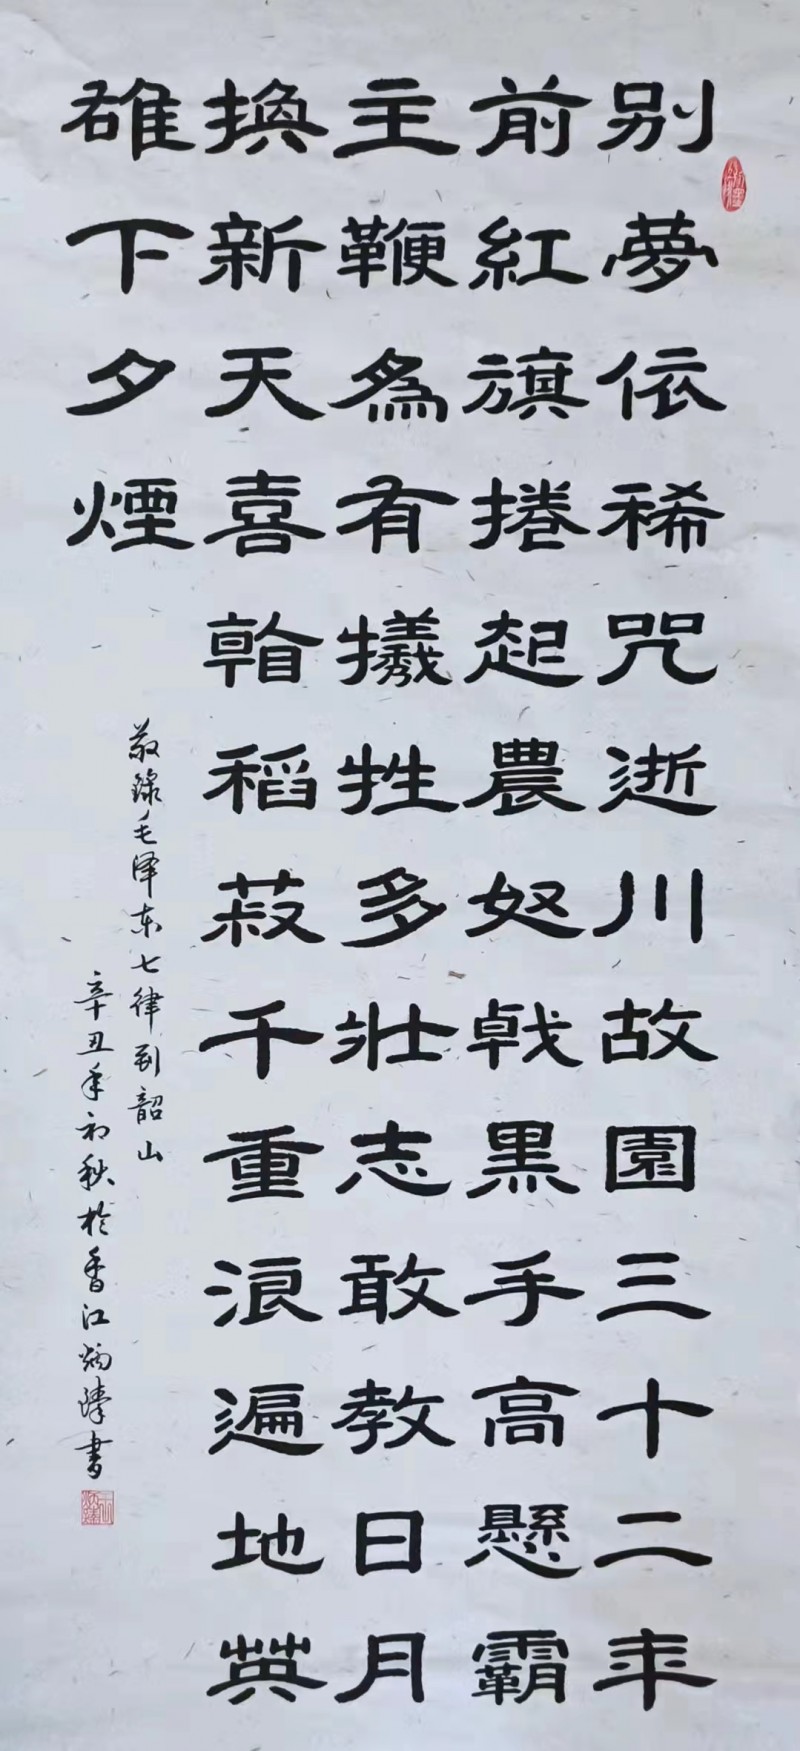 别夢依稀咒逝川故園三十二年
前紅旗捲起農奴戟黑手高懸霸
主鞭爲有犧牲多壯志敢教日月
換新天喜看稻菽千重浪遍地英
雄下夕煙
敬録毛泽东七律到韶山
辛丑年初秋於香江炳書